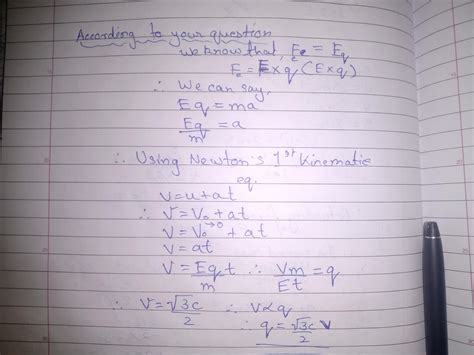 According to your question
we know that, Fe = Eq
Fe = E×q (E×q)
∴ We can say,
Eq = ma
Eq/m = a
∴ Using Newton's 1st Kinematic
eq.
V = u + at
∴ V = V₀ + at
V = V₀→0 + at
V = at
V = Eq/m t ∴ Vm/Et = q
∴ V = √3c/2 ∴ V∝q
∴ q = √3c/2